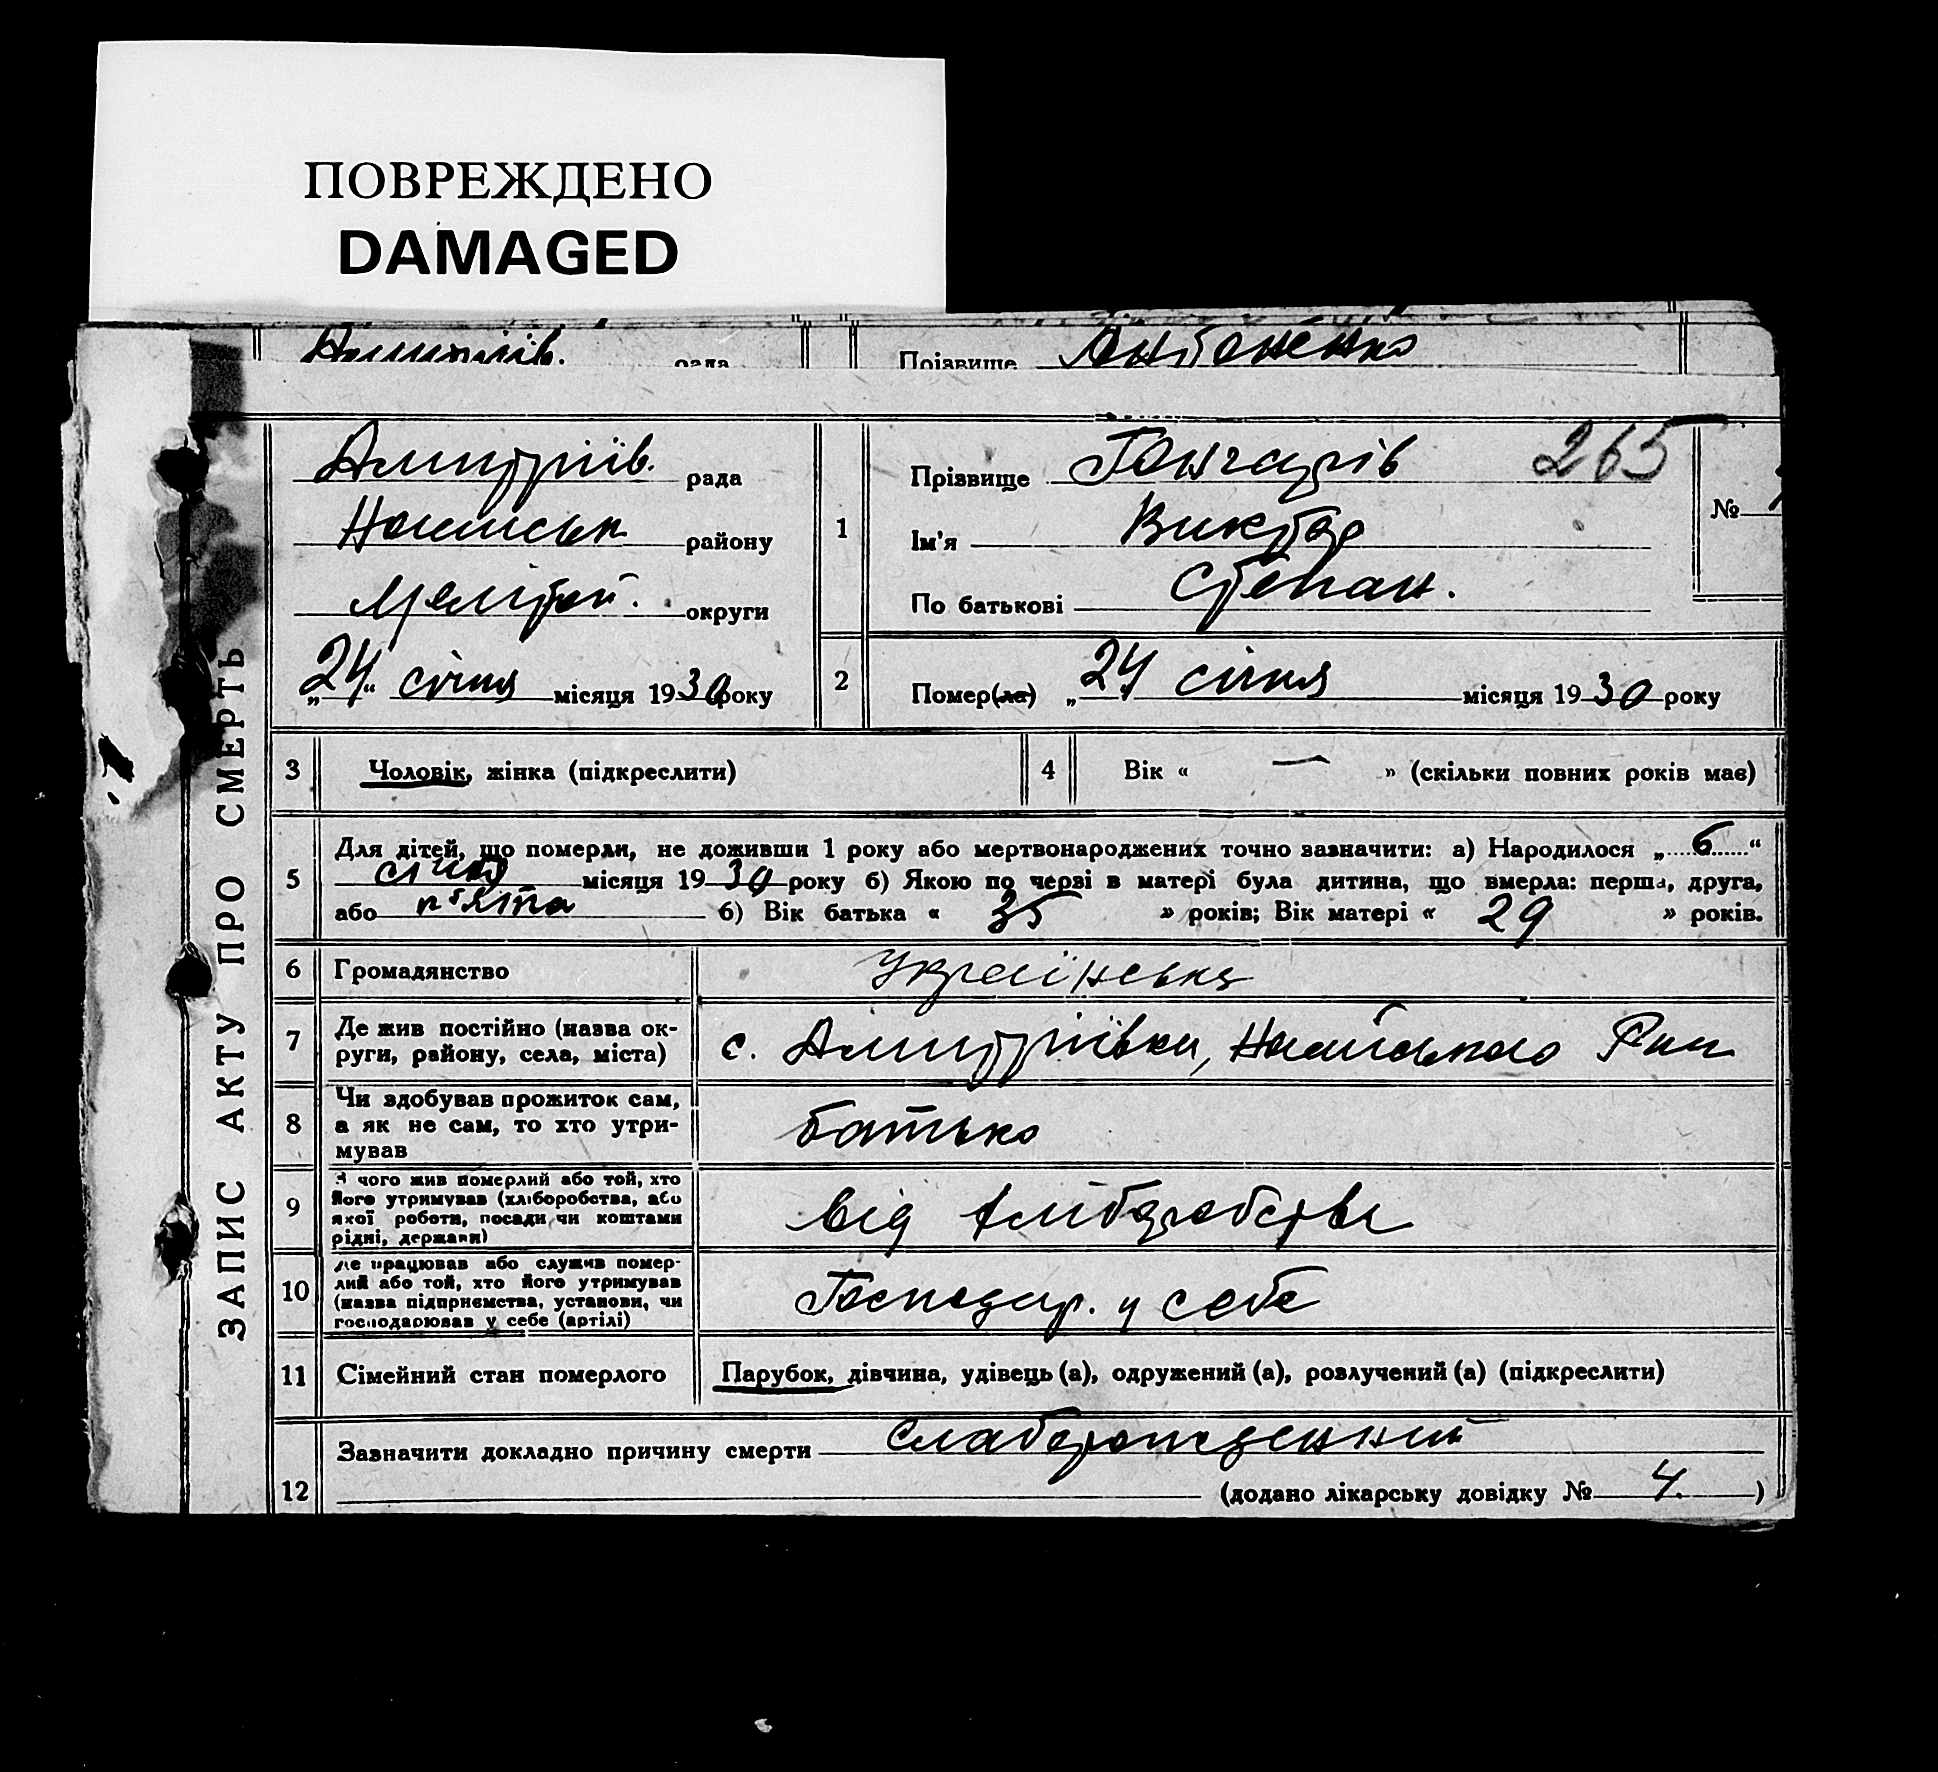 ПОВРЕЖДЕНО
DAMAGED
рада
Прізвище Антоненко
Дмитріїв. рада
району
Мелітоп. округи
„24“ січня місяця 1930 року
1
Прізвище Гончарів 265
Ім'я Виктор
По батькові Степан.
№
2
Помер(ла) „24 січня місяця 1930 року
ЗАПИС АКТУ ПРО СМЕРТЬ
3 Чоловік, жінка (підкреслити)
4 Вік « — » (скільки повних років має)
5 Для дітей, що померли, не доживши 1 року або мертвонароджених точно зазначити: а) Народилося „6“
січня місяця 1930 року б) Якою по черві в матері була дитина, що вмерла: перша, друга,
або п'ята б) Вік батька « 35 » років; Вік матері « 29 » років.
6 Громадянство Українська
7 Де жив постійно (назва ок-
руги, району, села, міста)
с. Дмитріївки,
8 Чи здобував прожиток сам,
а як не сам, то хто утри-
мував
батько
9 З чого жив померлий або той, хто
його утримував (хліборобства, або
якої роботи, посади чи коштами
рідні, держави)
від хліборобства
10 Де працював або служив помер-
лий або той, хто його утримував
(назва підприємства, установи, чи
господарював у себе (артілі)
Господар. у себе
11 Сімейний стан померлого Парубок, дівчина, удівець (а), одружений (а), розлучений (а) (підкреслити)
12 Зазначити докладно причину смерти слаборожденний
(додано лікарську довідку № 4. )